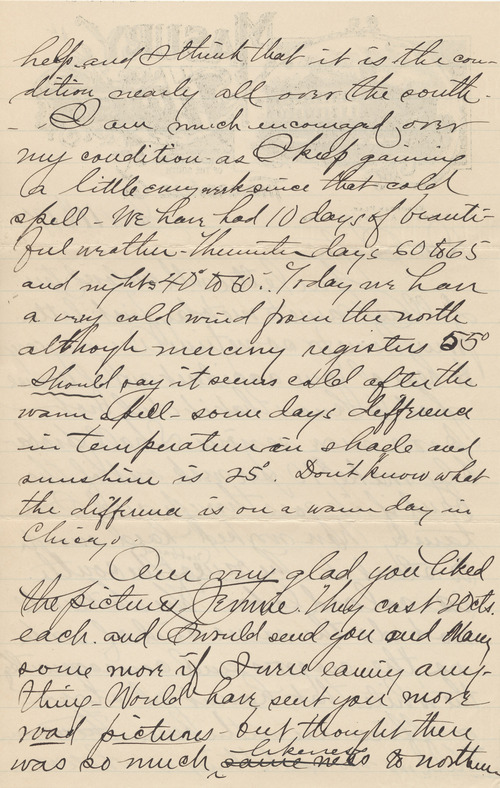 help and I think that it is the con-
dition nearly all over the south.
- I am much encouraged over
my condition as I keep gaining
a little every week since that cold
spell - We have had 10 days of beauti-
ful weather - days 60 to 65
and nights 40° to 60°. Today we have
a very cold wind from the north
although mercury registers 55°
- Should say it seems cold after the
warm spell - some days difference
in temperature in shade and
sunshine is 25°. Don't know what
the difference is on a warm day in
Chicago.
Am very glad you liked
the pictures Jennie. They cost 20cts.
each. and I would send you and Mary
some more if I were earning any-
thing - Would have sent you more
road pictures - but thought there
was so much likeness to northern